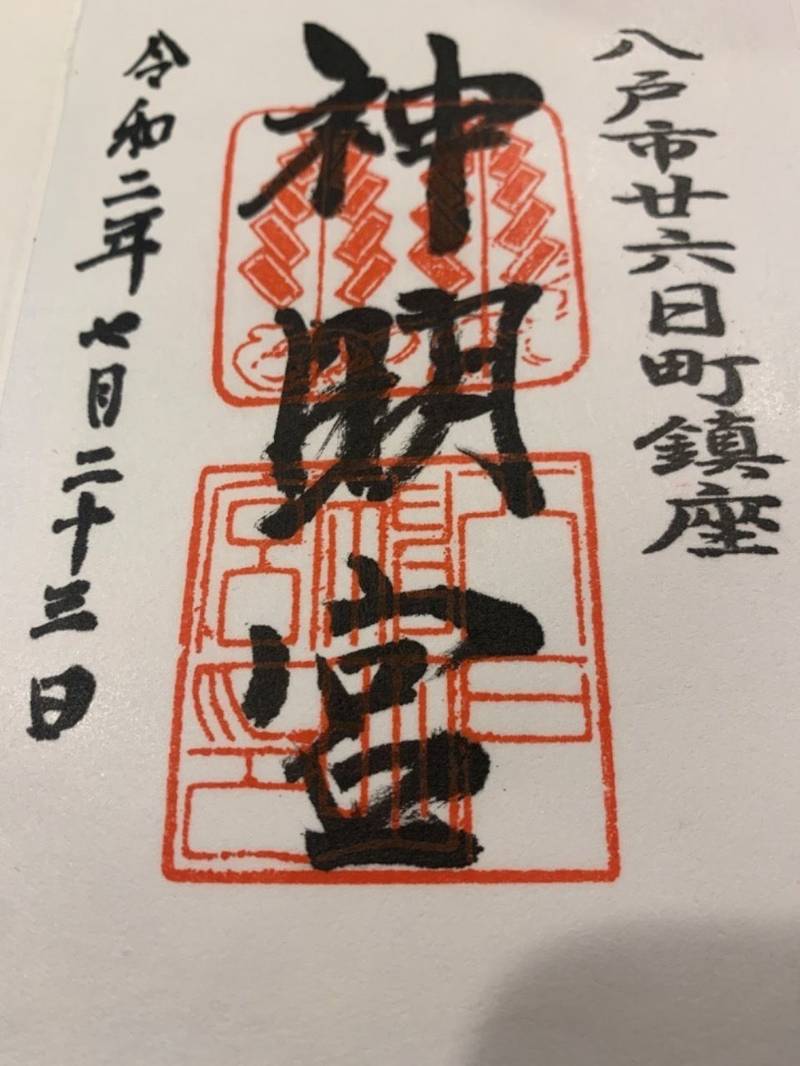 八戸市廿六日町鎮座
神明宮
令和二年七月二十三日